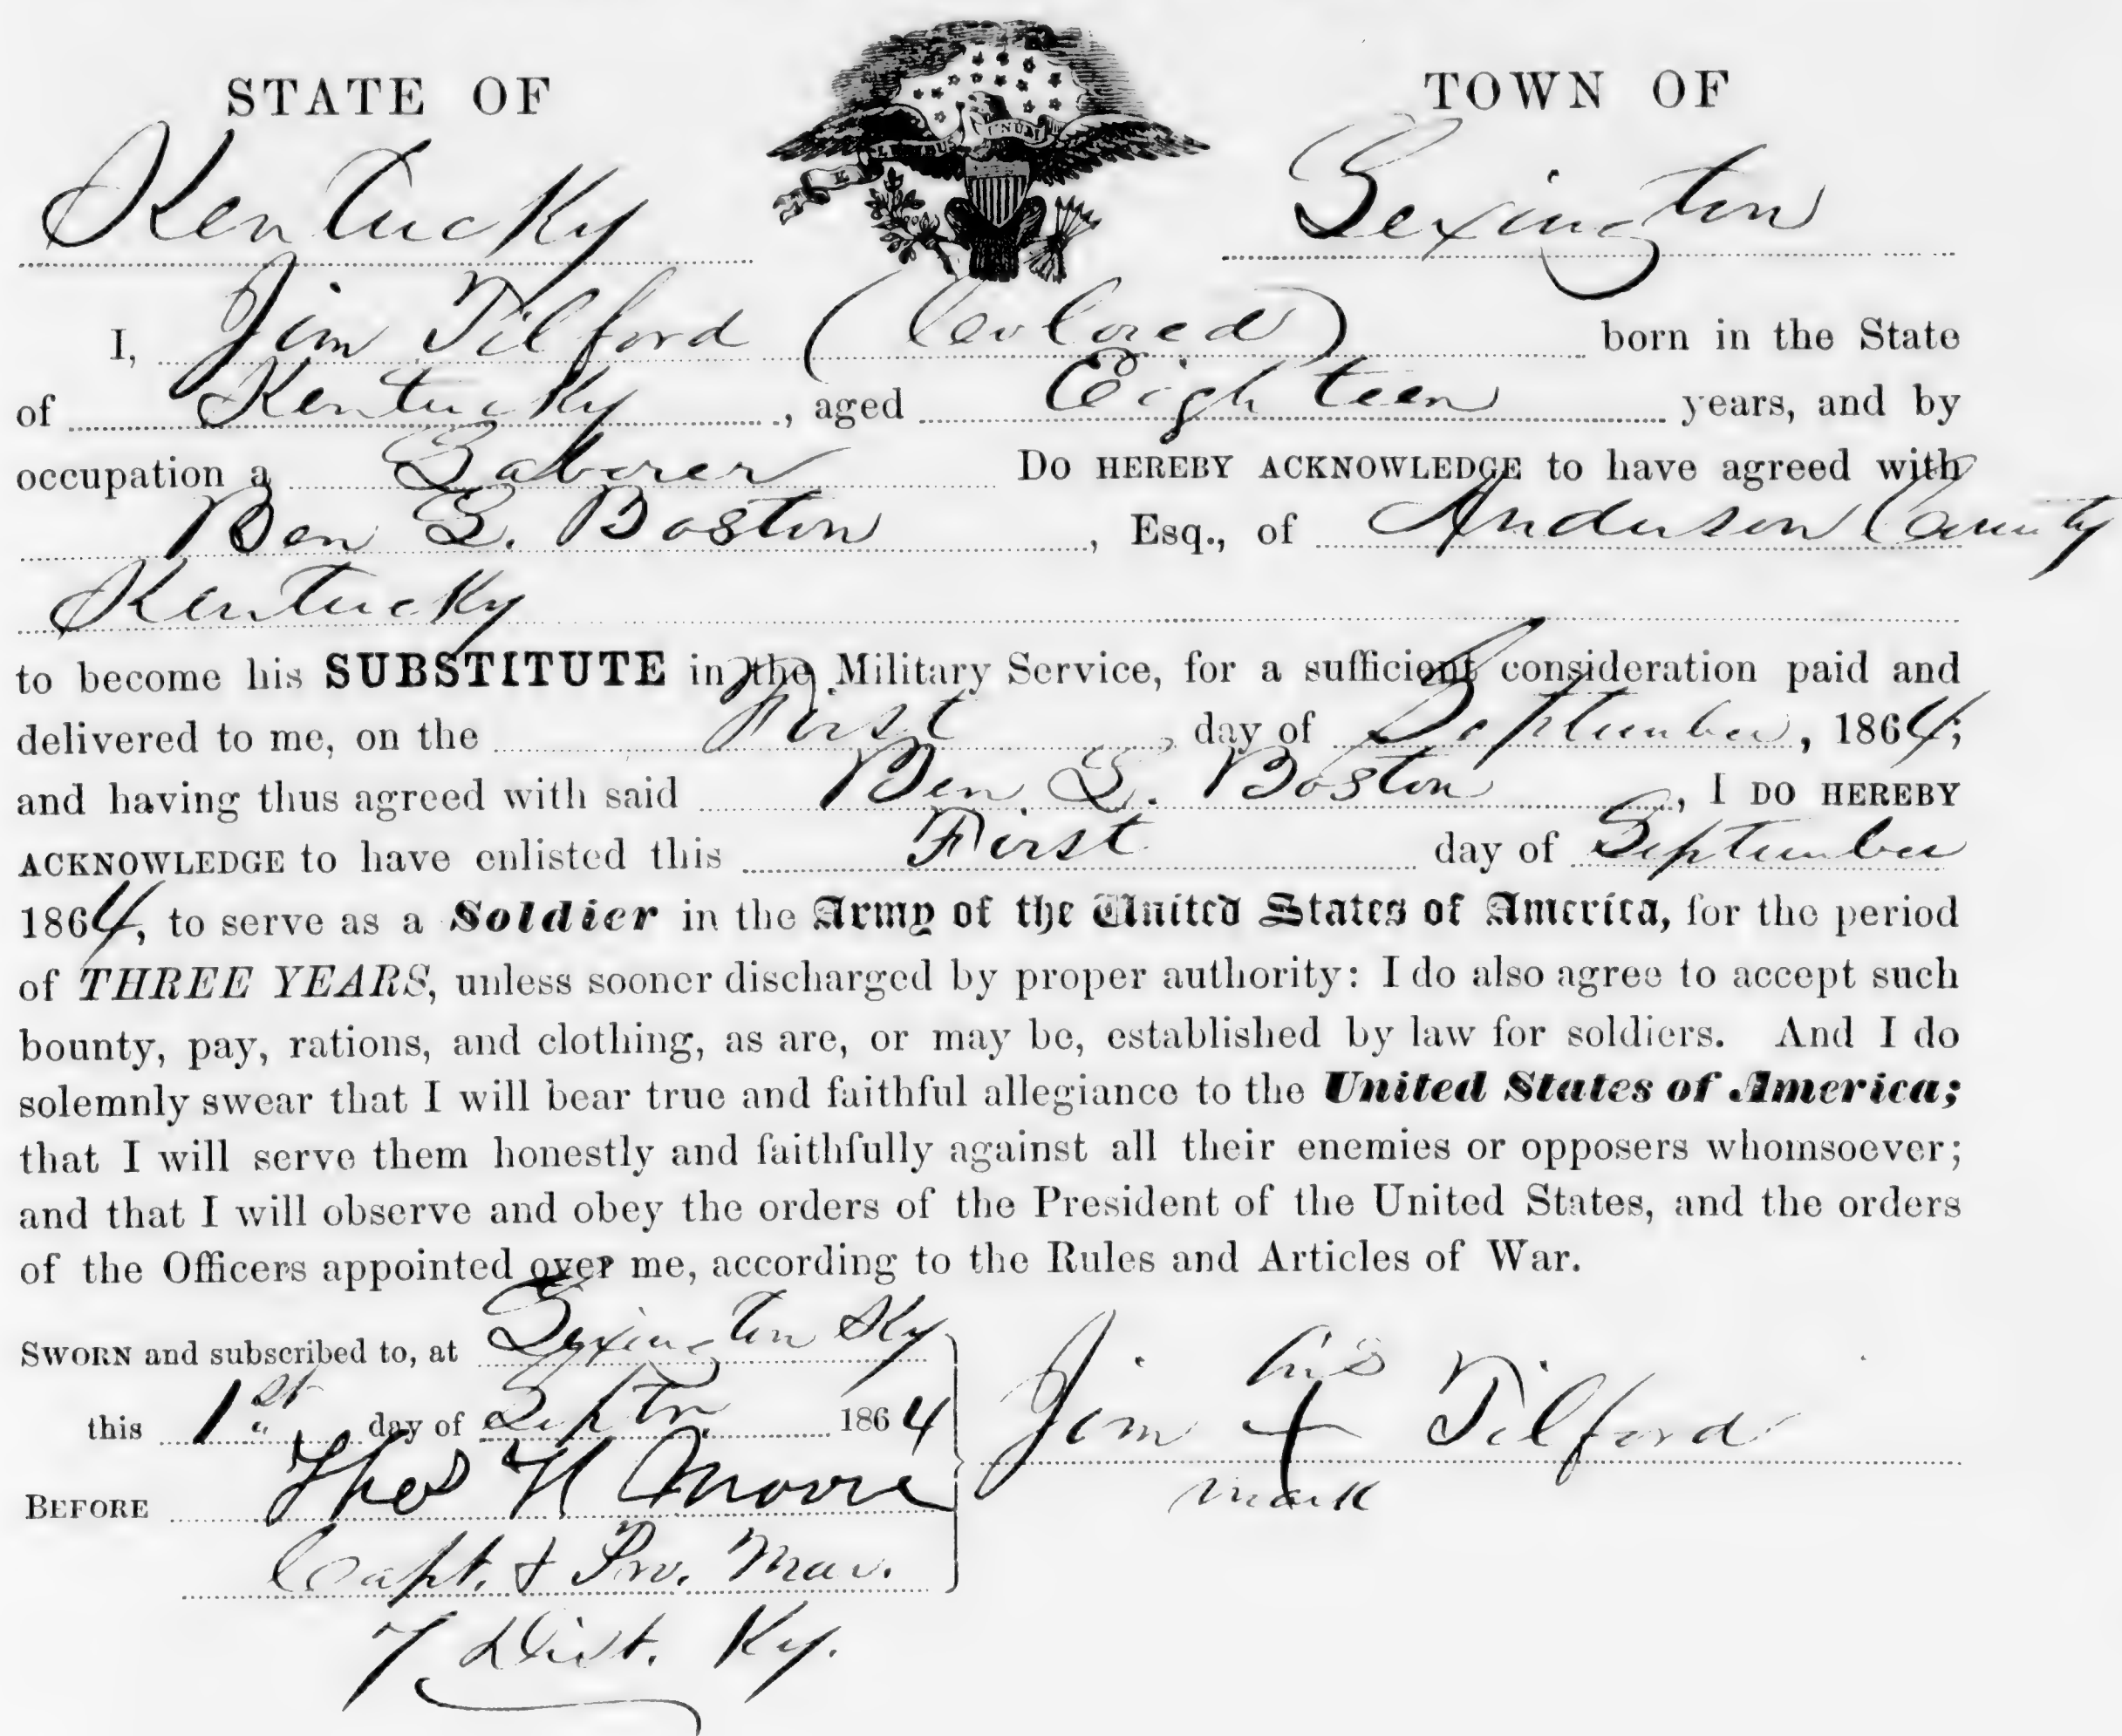 STATE OF
TOWN OF
PLURIBUS UNUM
Kentucky
Lexington
I, Jim Tilford (Colored) born in the State
of Kentucky, aged Eighteen years, and by
occupation a Laborer DO HEREBY ACKNOWLEDGE to have agreed with
Ben L. Boston, Esq., of Anderson County
Kentucky
to become his SUBSTITUTE in the Military Service, for a sufficient consideration paid and
delivered to me, on the First, day of September, 1864;
and having thus agreed with said Ben. L. Boston, I DO HEREBY
ACKNOWLEDGE to have enlisted this First day of September
1864, to serve as a Soldier in the Army of the United States of America, for the period
of THREE YEARS, unless sooner discharged by proper authority: I do also agree to accept such
bounty, pay, rations, and clothing, as are, or may be, established by law for soldiers. And I do
solemnly swear that I will bear true and faithful allegiance to the United States of America;
that I will serve them honestly and faithfully against all their enemies or opposers whomsoever;
and that I will observe and obey the orders of the President of the United States, and the orders
of the Officers appointed over me, according to the Rules and Articles of War.
SWORN and subscribed to, at Lexington Ky
this 1st day of Septr. 1864
his
Jim + Tilford
mark
BEFORE Thos H Moore
Capt. & Pro. Mar.
7 Dist. Ky.